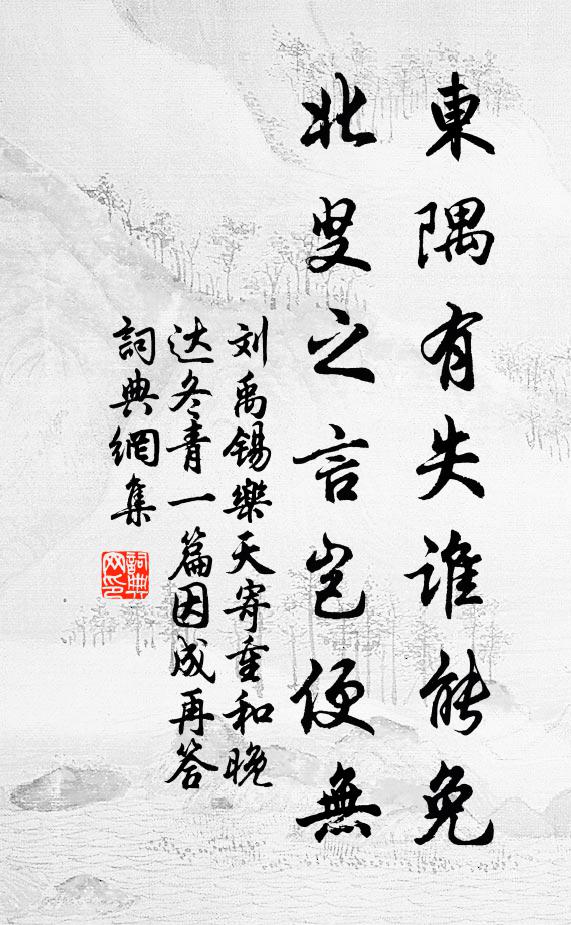 東隅有失誰能免
北叟之言豈便無
刘禹锡樂天寄重和晚
达冬青一篇因成再答
詞典網集
詞典
网印